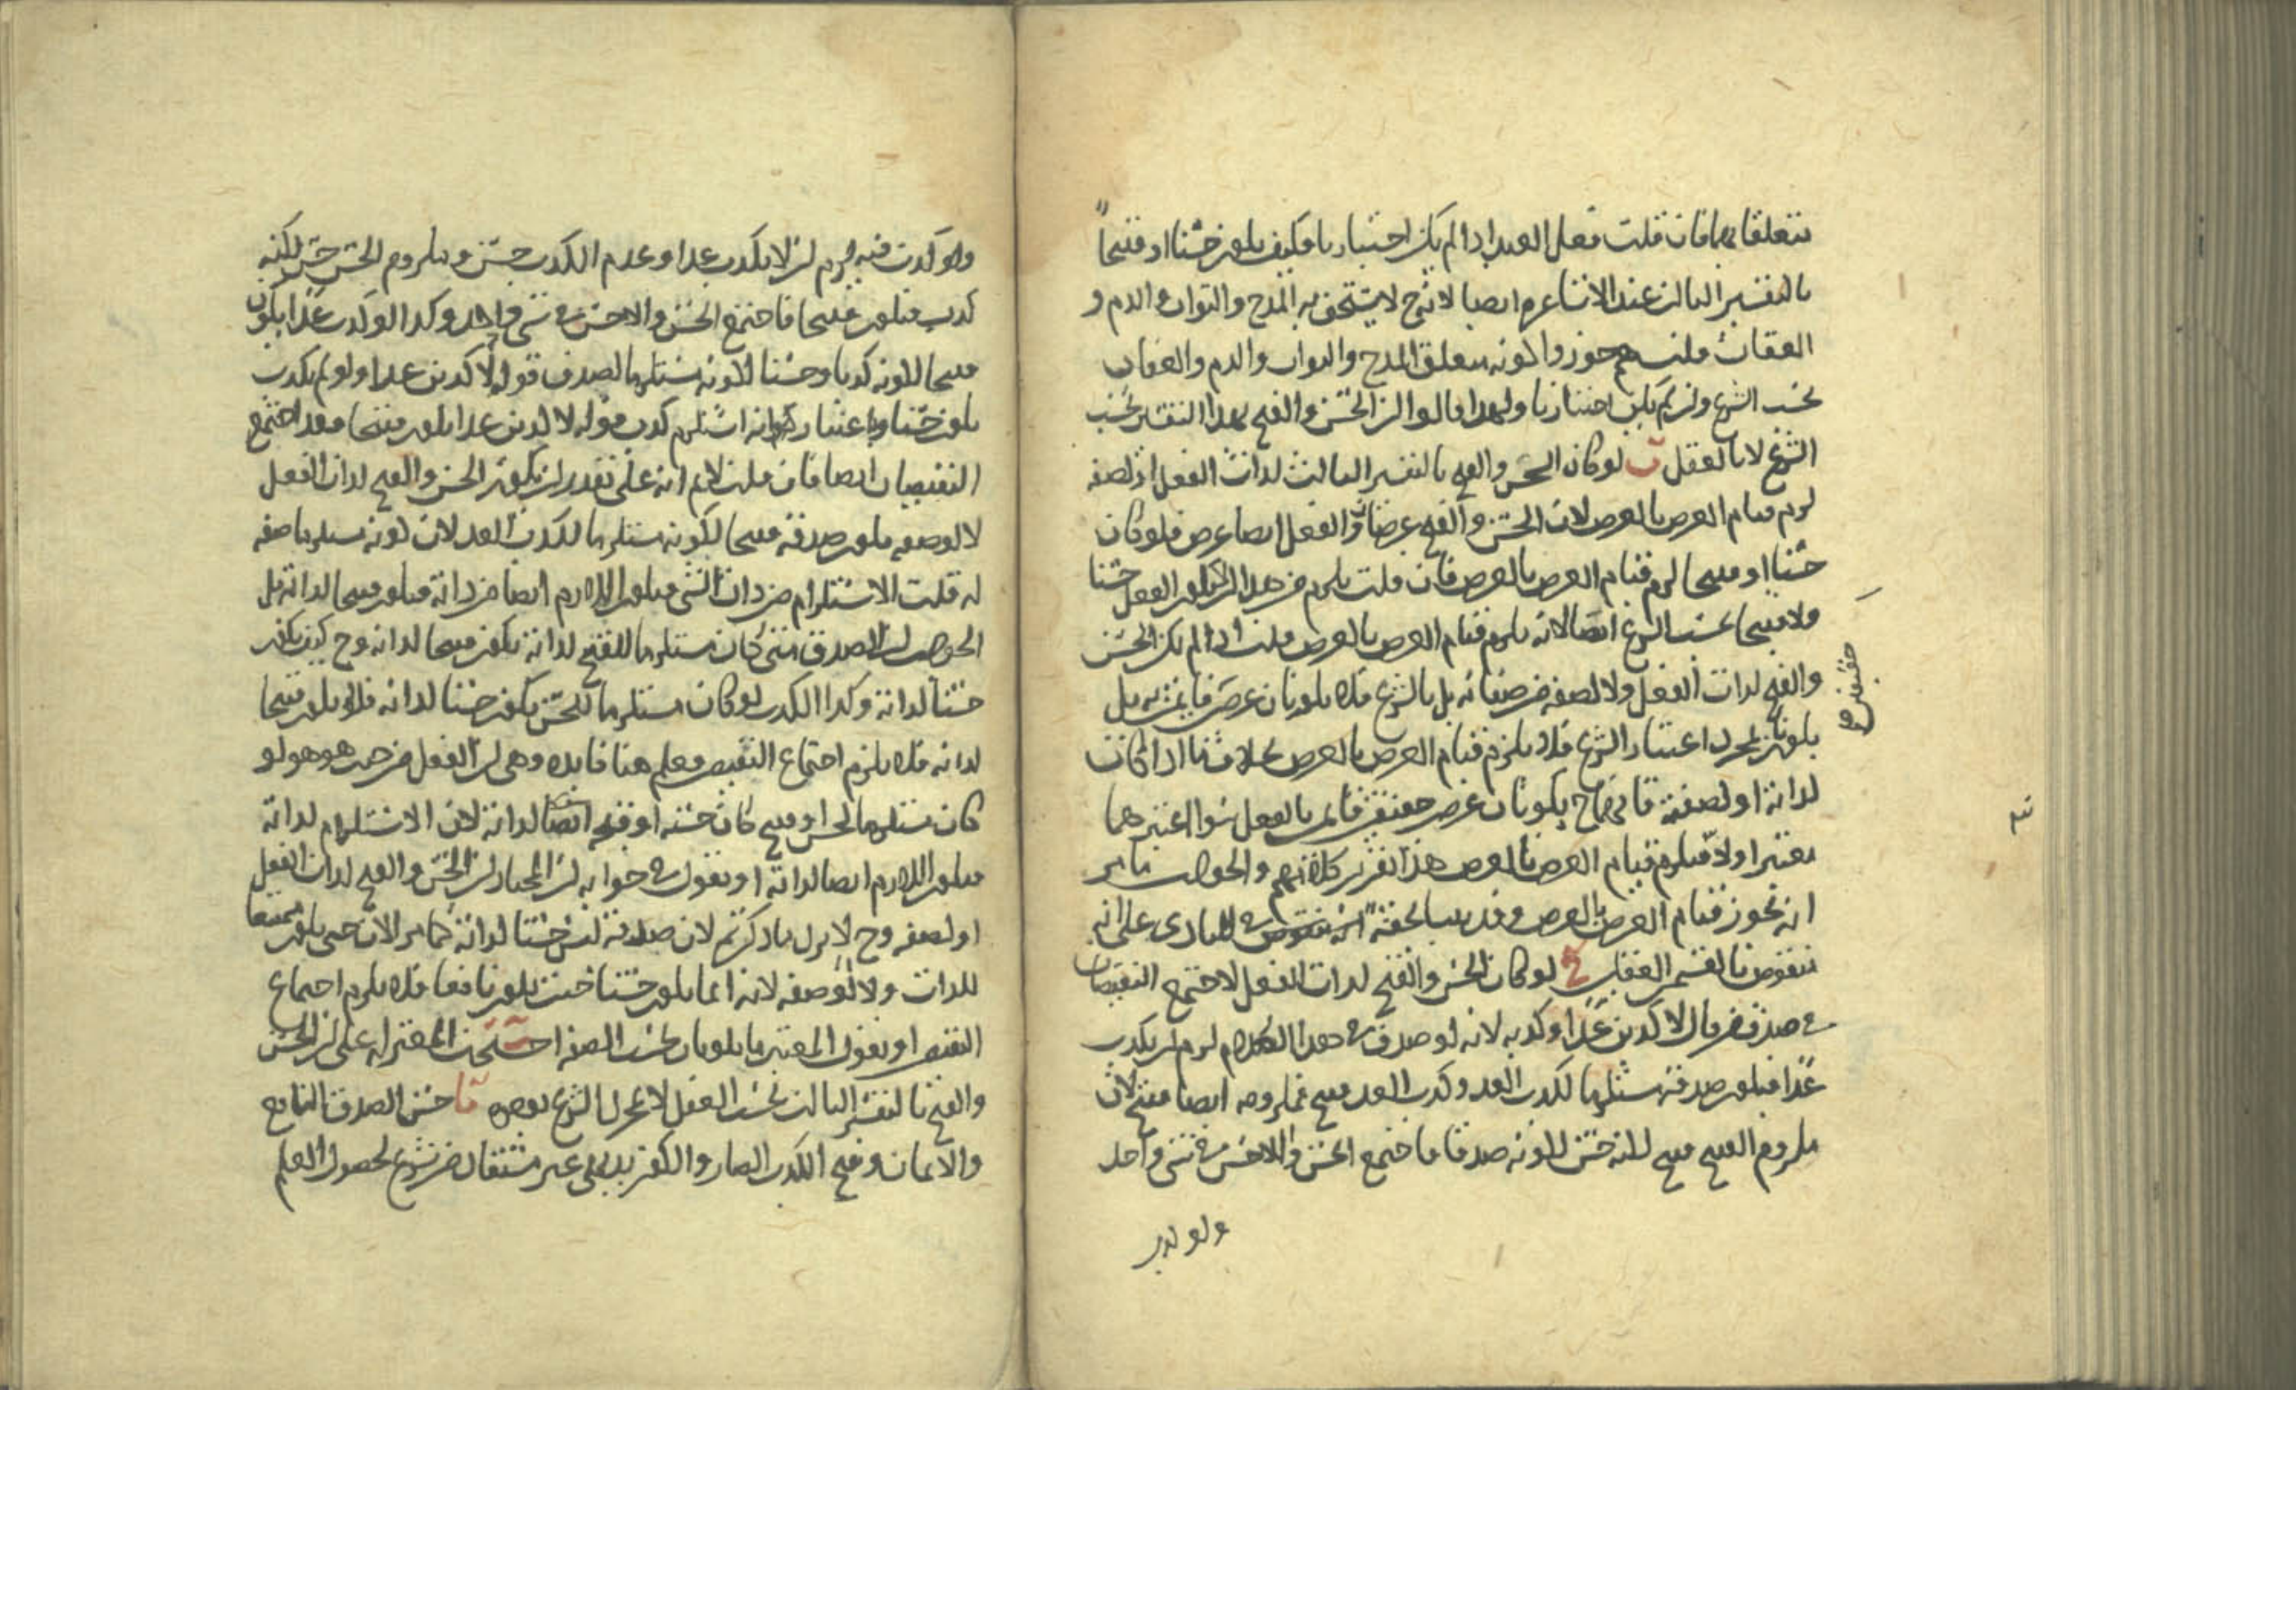 متعلقا بهما فان قلت فعل العبد اذا لم يكن اختياريا فكيف يكون حسنا او قبيحا
بالتفسير الثالث عند الاشاعرة ايضا لانه ح لا يستحق به المدح والثواب والذم و
العقاب قلت هم جوزوا كونه متعلق المدح والثواب والذم والعقاب
بحسب الشرع وان لم يكن اختياريا ولهذا قالوا ان الحسن والقبح بهذا التفسير بحسب
الشرع لا بالعقل ب لو كان الحسن والقبح بالتفسير الثالث لذات الفعل او لصفة
لزم قيام العرض بالعرض لان الحسن والقبح عرضان والفعل ايضا عرض فلو كان
حسنا او قبيحا لزم قيام العرض بالعرض فان قلت يلزم من هذا ان لا يكون الفعل حسنا
ولا قبيحا بحسب الشرع ايضا لانه يلزم قيام العرض بالعرض قلت اذا لم يكن الحسن
والقبح لذات الفعل ولا لصفة من صفاته بل بالشرع فلا يكونان عرضين قائمين به بل
يكونان بمجرد اعتبار الشرع فلا يلزم قيام العرض بالعرض بخلاف ما اذا كانا
لذاته او لصفته فانهما ح يكونان عرضين حقيقيين قائمين بالفعل سواء اعتبرهما
معتبر او لا فيلزم قيام العرض بالعرض هذا تقرير كلامهم والجواب ما مر
انه يجوز قيام العرض بالعرض وقد بينا تحقيقه للباري على انه
منقوض بالقسم العقلي ج لو كان الحسن والقبح لذات الفعل لاجتمع النقيضان
في صدق من قال لاكذبن غدا وكذبه لانه لو صدق في هذا الكلام لزم ان يكذب
غدا فيكون صدقه مستلزما لكذب الغد وكذب الغد قبيح فملزومه ايضا قبيح لان
ملزوم القبيح قبيح لكنه حسن لكونه صدقا فاجتمع الحسن واللاحسن في شيء واحد
ولو كذب
حقيقيين
ولو كذب فيه لزم ان لا يكذب غدا وعدم الكذب حسن وملزوم الحسن حسن لكنه
كذب فيكون قبيحا فاجتمع الحسن واللاحسن في شيء واحد وكذا لو كذب غدا يكون
قبيحا لكونه كذبا وحسنا لكونه مستلزما لصدق قوله لاكذبن غدا ولو لم يكذب
يكون حسنا وباعتبار انه استلزم كذب قوله لاكذبن غدا يكون قبيحا فقد اجتمع
النقيضان ايضا فان قلت لانم انه على تقدير ان يكون الحسن والقبح لذات الفعل
لا لوصفه يكون صدقه قبيحا لكونه مستلزما لكذب الغد لان كونه مستلزما صفة
له قلت الاستلزام من ذات الشيء فيكون اللازم ايضا من ذاته فيكون قبيحا لذاته بل
الجواب ان الصدق متى كان مستلزما للقبح لذاته يكون قبيحا لذاته وح كيف يكون
حسنا لذاته وكذا الكذب لو كان مستلزما للحسن يكون حسنا لذاته فلا يكون قبيحا
لذاته فلا يلزم اجتماع النقيضين فعلم هنا فائدة وهي ان الفعل من حيث هو هو لو
كان مستلزما لحسن او قبيح كان حسنه او قبحه ايضا لذاته لان الاستلزام لذاته
فيكون اللازم ايضا لذاته او نقول في جوابه ان المختار ان الحسن والقبح لذات الفعل
او لصفة وح لا يرد ما ذكرتم لان صدقه ليس حسنا لذاته كما مر الان حتى يكون مقتضيا
للذات ولا لوصفه لانه انما يكون حسنا حيث يكون نافعا فلا يلزم اجتماع
النقيضين او نقول المعتبر ما يكونان بحسب الصفة احتجت المعتزلة على ان الحسن
والقبح بالتفسير الثالث بحسب العقل لا بمجرد الشرع بوجوه آ حسن الصدق النافع
والايمان وقبح الكذب الضار والكفر بديهي غير مستفاد من شرع لحصول العلم